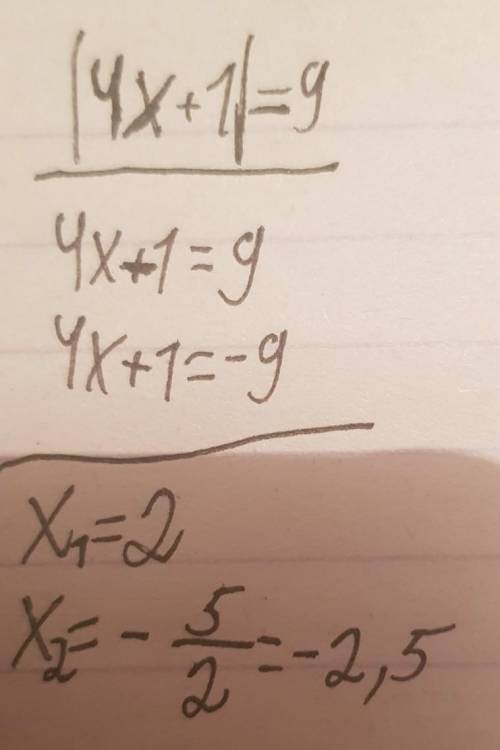 |4x+1|=9
4x+1=9
4x+1=-9
x₁=2
x₂=-5/2=-2,5